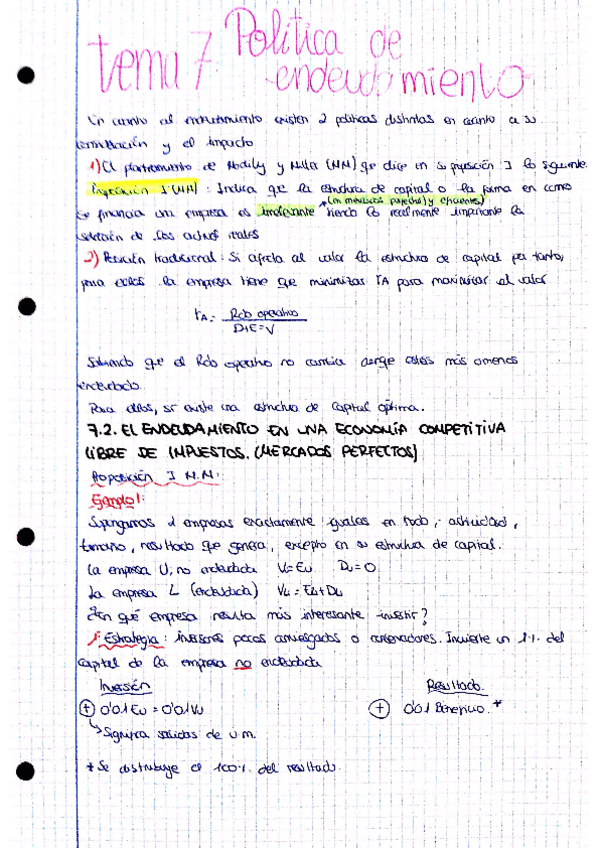 tema 7 Política de
endeudamiento
En cuanto al endeudamiento existen 2 políticas distintas en cuanto a su
contribución y el impacto
1) El planteamiento de Modilly y Miller (MM) que dice en su proposición I lo siguiente.
Proposición I (MM): Indica que la estructura de capital o la forma en como
(en mercados perfectos y eficientes)
se financia una empresa es irrelevante siendo lo realmente importante la
selección de los activos reales
2) Posición tradicional: Si afecta al valor la estructura de capital por tanto,
para ellos la empresa tiene que minimizar rA para maximizar el valor
rA = Rdo operativo
D+E=V
Sabiendo que el Rdo operativo no cambia aunque estés más o menos
endeudado.
Para ellos, sí existe una estructura de capital óptima.
7.2. EL ENDEUDAMIENTO EN UNA ECONOMÍA COMPETITIVA
LIBRE DE IMPUESTOS. (MERCADOS PERFECTOS)
Proposición I M.M.
Ejemplo 1:
Supongamos 2 empresas exactamente iguales en todo, actividad,
tamaño, resultado que genera, excepto en su estructura de capital.
La empresa U, no endeudada Vu = Eu Du = 0
La empresa L (endeudada) VL = EL + DL
¿En qué empresa resulta más interesante invertir?
1ª Estrategia: Inversores pocos arriesgados o conservadores. Invierte un 1%. del
capital de la empresa no endeudada
Inversión Resultado.
(+) 0'01 Eu = 0'01 Vu (+) 0'01 Beneficio. *
↳ Significa salidas de u.m.
* Se distribuye el 100%. del resultado.